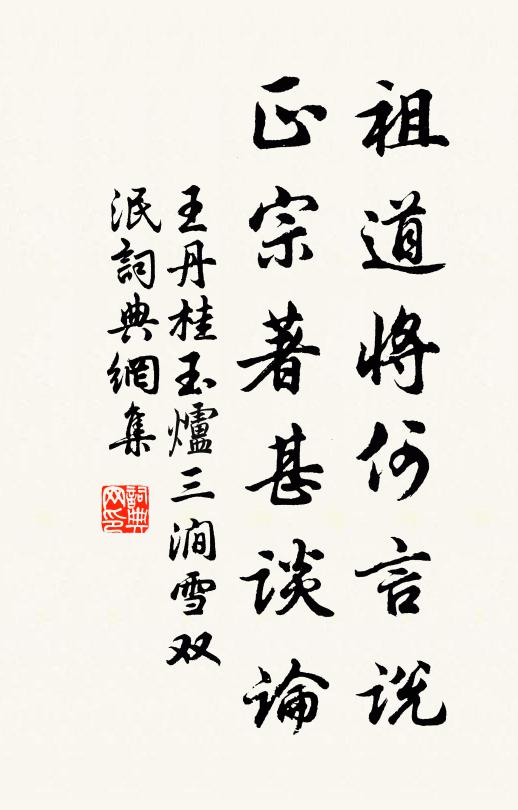 祖道将何言说
正宗著甚谈论
王丹桂玉爐三涧雪双
泯詞典網集
詞典网印